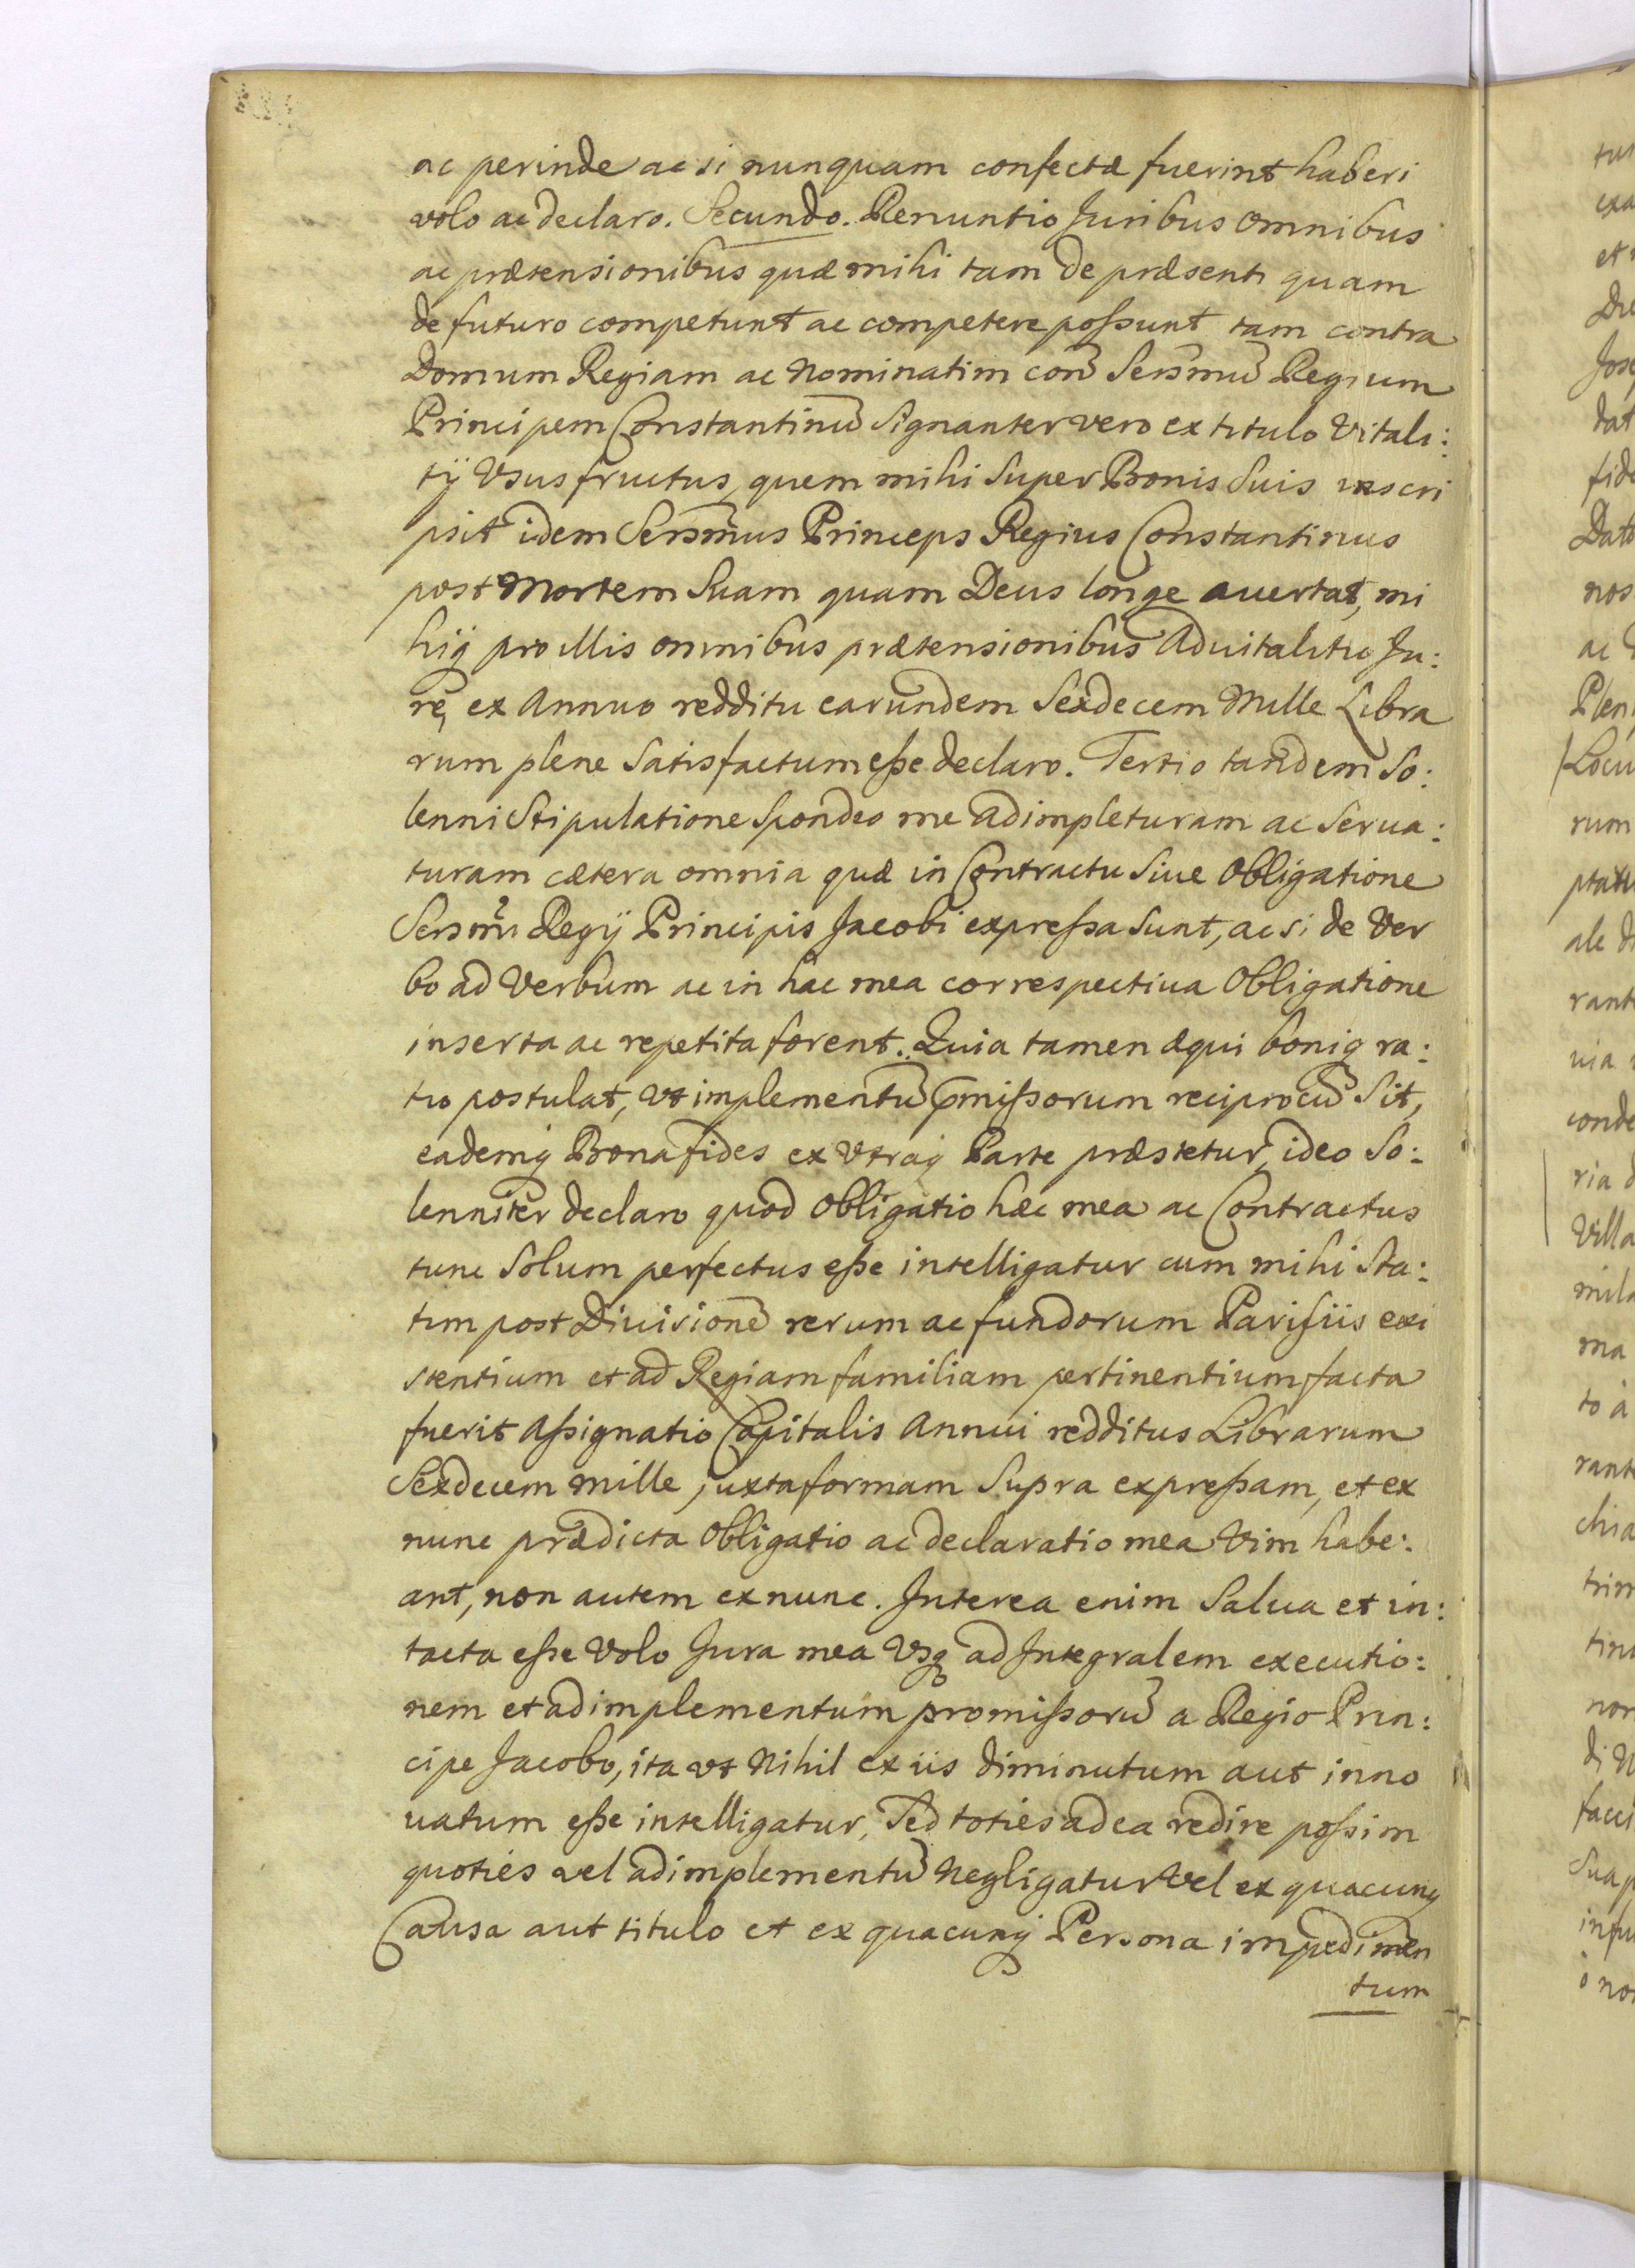 ac perinde ac si nunquam confectæ fuerint haberi
volo ac declaro. Secundo. Renuntio Juribus omnibus
ac prætensionibus quæ mihi tam de præsenti quam
de futuro competunt ac competere possunt tam contra
Domum Regiam ac Nominatim con̄ Sers̄mū Regium
Principem Constantinū Signanter vero ex titulo Vitali:
tÿ Vsusfructus, quem mihi Super Bonis Suis inscri
psit idem Sers̄mus Princeps Regius Constantinus
post Mortem Suam quam Deus longe auertat, mi
hiq̨ pro illis omnibus prætensionibus Aduitalitio Ju:
re, ex Annuo redditu earundem Sexdecem Mille Libra
rum plene Satisfactum esse declaro. Tertio tandem So:
lenni Stipulatione Spondeo me adimpleturam ac Serua:
turam cætera omnia quæ in Contractu Siue Obligatione
Sers̄mi Regÿ Principis Jacobi expressa Sunt, ac si de Ver
bo ad Verbum ac in hac mea correspectiua Obligatione
inserta ac repetita forent. Quia tamen æqui boniq̨ ra:
tio postulat, Vt implementū p̄missorum reciprocū Sit,
eademq̨ Bona fides ex Vtraq̨ Parte præstetur, ideo So:
lenniter declaro quod Obligatio hæc mea ac Contractus
tunc Solum perfectus esse intelligatur cum mihi Sta:
tim post Diuisionē rerum ac fundorum Parisiis exi
stentium et ad Regiam familiam pertinentium facta
fuerit Assignatio Capitalis Annui redditus Librarum
Sexdecem mille juxta formam Supra expressam, et ex
nunc prædicta Obligatio ac declaratio mea Vim habe:
ant, non autem ex nunc. Interea enim Salua et in:
tacta esse Volo Jura mea Vsq̨ ad Integralem executio:
nem et adimplementum promissorū a Regio Prin:
cipe Jacobo, ita vt Nihil ex iis diminutum aut inno
uatum esse intelligatur, Sed toties ad ea redire possim
quoties vel adimplementū Negligatur Vel ex quacunq̨
Causa aut titulo et ex quacunq̨ Persona impedimen
tum